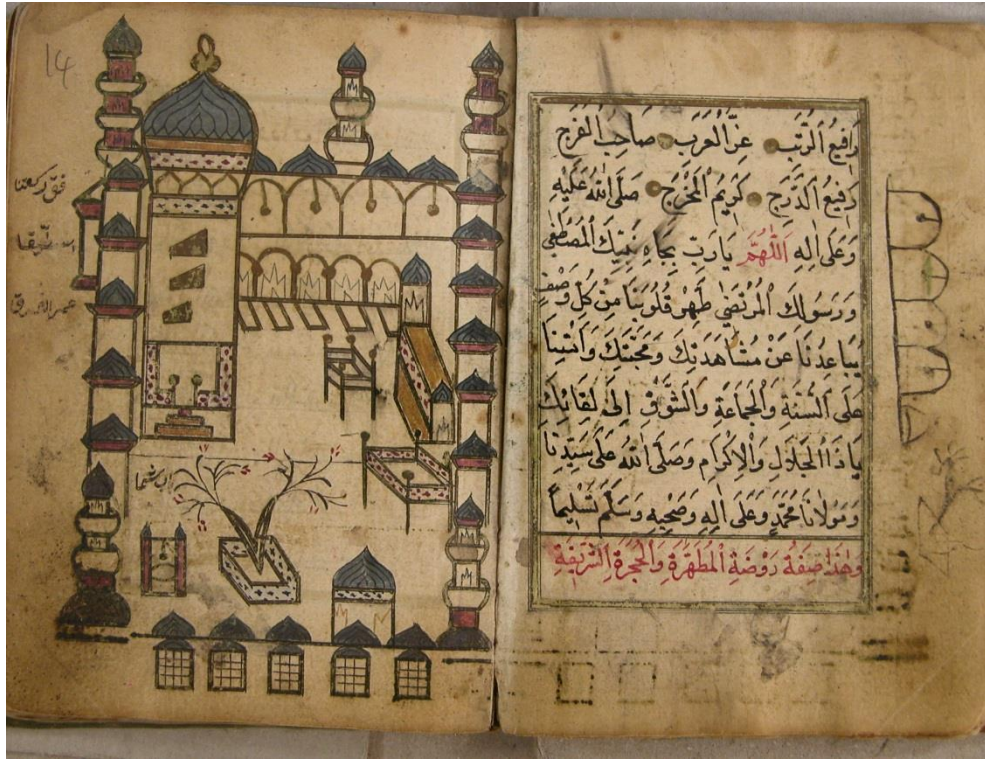 رَافِعُ الرُّتَبِ عِزُّ الْعَرَبِ صَاحِبُ الْفَرَجِ
رَفِيعُ الدَّرَجِ كَرِيمُ الْمَخْرَجِ صَلَّى اللهُ عَلَيْهِ
وَعَلَى اٰلِهِ اَللّٰهُمَّ يَارَبِّ بِجَاهِ نَبِيِّكَ الْمُصْطَفٰى
وَرَسُولِكَ الْمُرْتَضٰى طَهِّرْ قُلُوبَنَا مِنْ كُلِّ وَصْفٍ
يُبَاعِدُنَا عَنْ مُشَاهَدَتِكَ وَمَحَبَّتِكَ وَاَمِتْنَا
عَلَى السُّنَّةِ وَالْجَمَاعَةِ وَالشَّوْقِ اِلٰى لِقَائِكَ
يَاذَا الْجَلَالِ وَالْاِكْرَامِ وَصَلَّى اللهُ عَلَى سَيِّدِنَا
وَمَوْلَانَا مُحَمَّدٍ وَعَلَى اٰلِهِ وَصَحْبِهِ وَسَلَّمَ تَسْلِيمًا
وَهٰذَا صِفَةُ رَوْضَةِ الْمُطَهَّرَةِ وَالْحُجْرَةِ الشَّرِيفَةِ
14